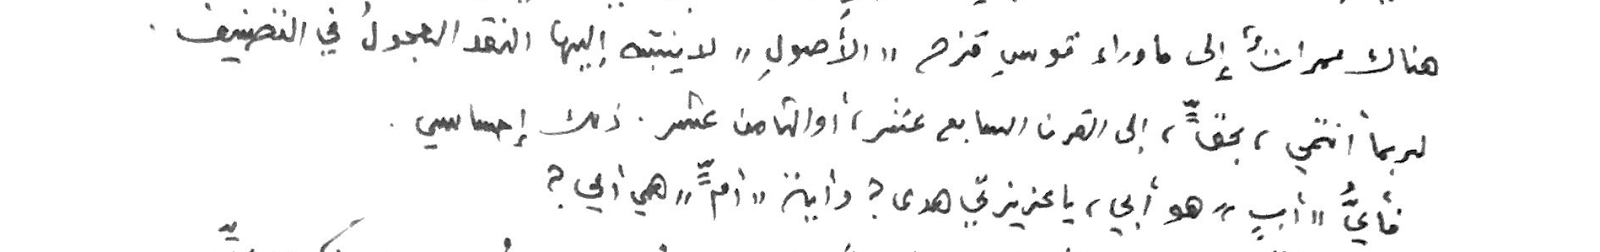 هناك ممراتٌ إلى ما وراء قوسِ قزح "الأصولِ" لا ينتبه إليها النقد العجولُ في التصنيف.
لربما أنتمي، بحقٍّ، إلى القرن السابع عشر، أو الثامن عشر. ذلك إحساسي.
فأيُّ "أبٍ" هو أبي، يا عزيزتي هدى؟ وأية "أمٍّ" هي أمي؟